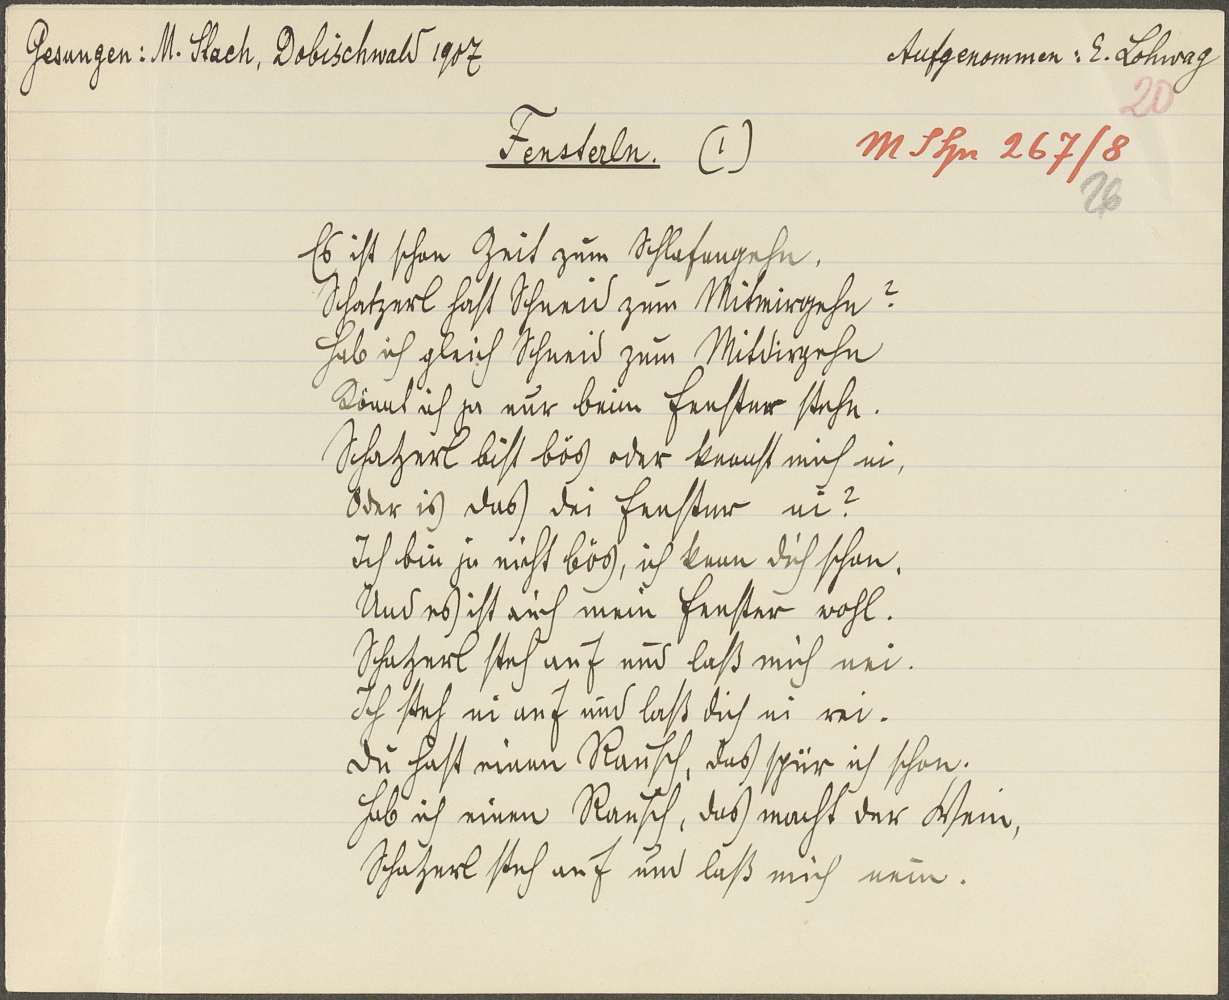 Gesungen: M. Stach, Dobischwald 1907
Aufgenommen: E. Lohwag
20
Fensterln. (1)
267/8
26
Es ist schon Zeit zum Schlafengehn,
Schatzerl hast Schneid zum Mitmirgehn?
Hab ich gleich Schneid zum Mitdirgehn
Könnt ich ja nur beim Fenster stehn.
Schatzerl bist bös oder kennst mich ni,
Oder is das dei Fenster ni?
Ich bin ja nicht bös, ich kenn dich schon,
Und es ist auch mein Fenster wohl.
Schatzerl steh auf und laß mich nei.
Ich steh ni auf und laß dich ni rei.
Du hast einen Rausch, das spür ich schon.
Hab ich einen Rausch, das macht der Wein,
Schatzerl steh auf und laß mich nein.